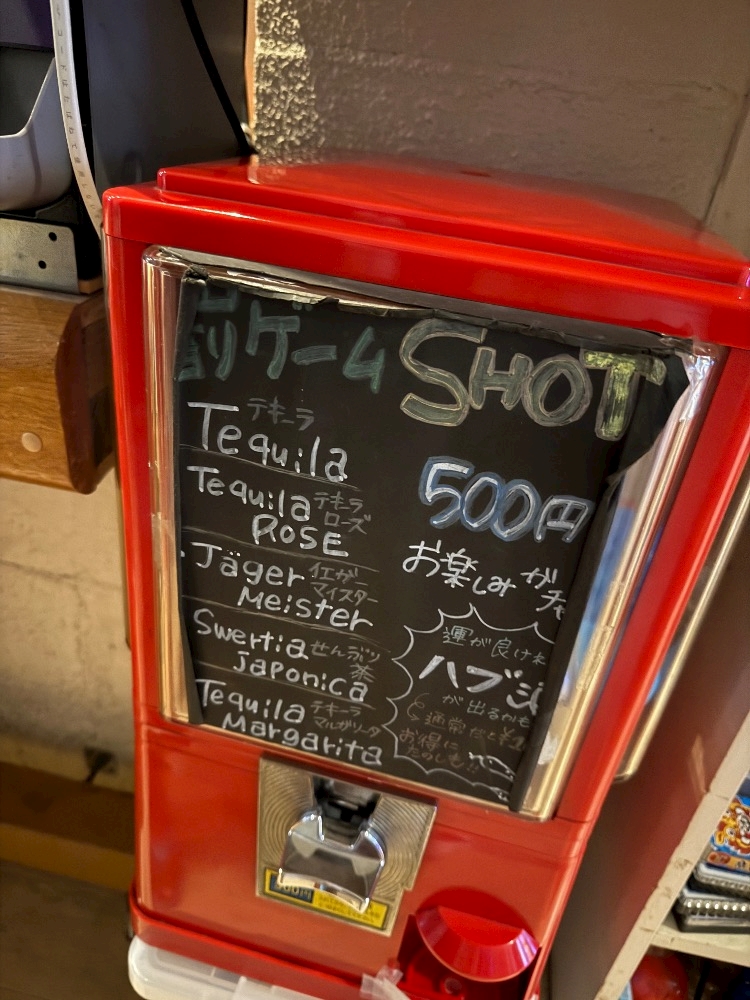 ゲーム
SHOT
テキーラ
Tequila
500円
Tequila テキーラ
ROSE ローズ
お楽しみガチャ
Jäger イエガ
Meister マイスター
運が良けれ
Swertia せんぶり
Japonica 茶
ハブ
が出るかも
通常だと
お得に
たのしも!!
Tequila テキーラ
Margarita マルガリータ